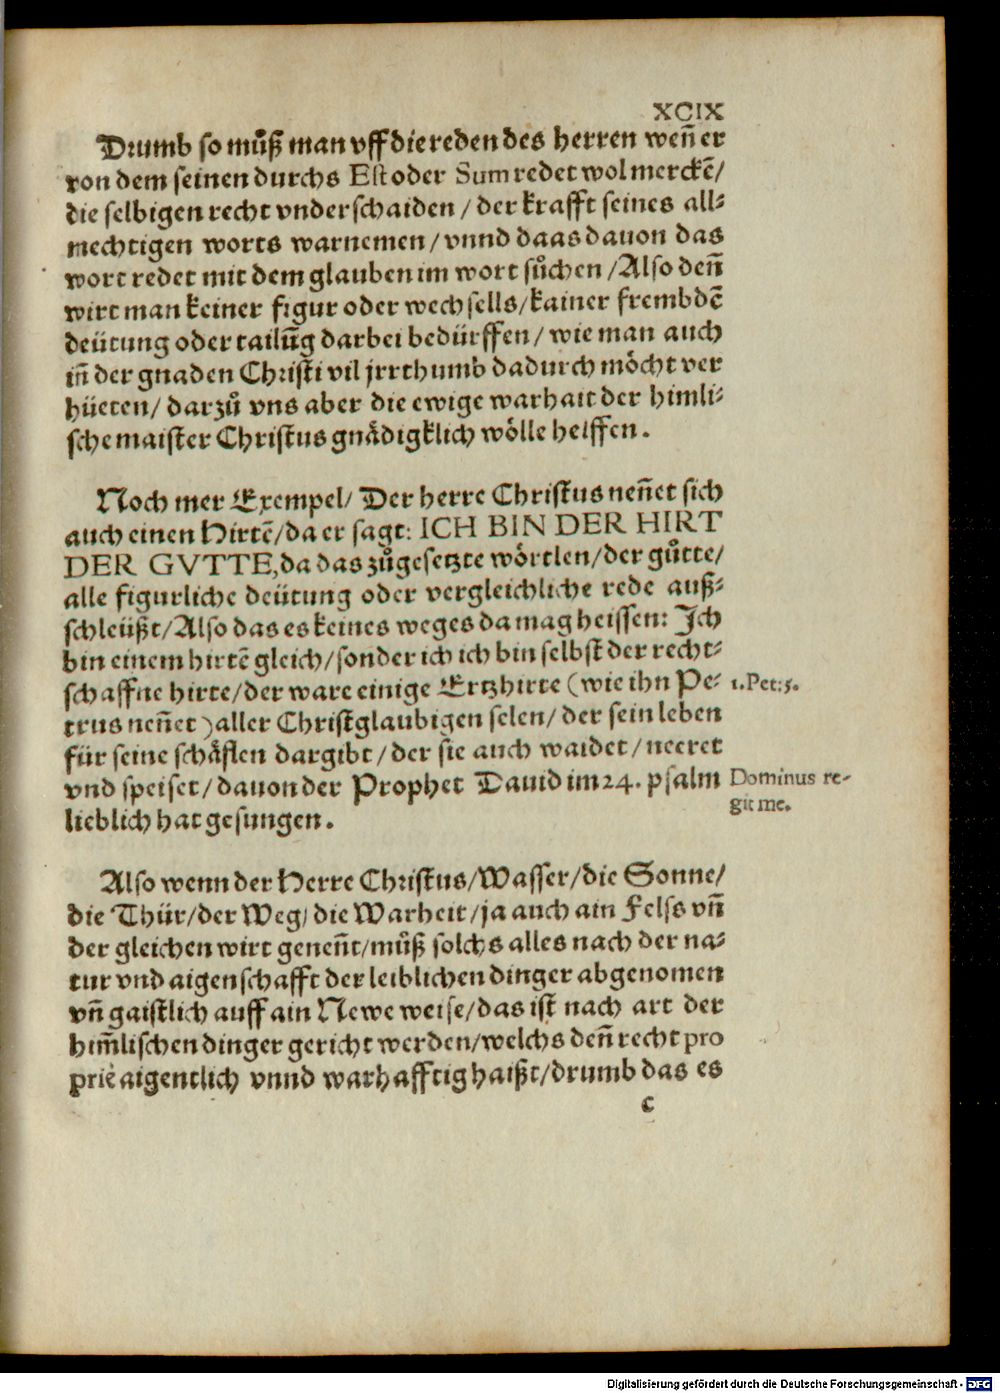 XCIX
Drumb so mů̈ß man vff die reden des herren weñ er
von dem seinen durchs Est oder Sum redet wol merckẽ/
die selbigen recht vnderschaiden / der krafft seines all⸗
mechtigen worts warnemen / vnnd daas dauon das
wort redet mit dem glauben im wort sůchen / Also deñ
wirt man keiner figur oder wechsells / kainer frembdẽ
deütung oder tailũg darbei bedürffen / wie man auch
iñ der gnaden Christi vil jrrthumb dadurch möcht ver
hüeten / darzů vns aber die ewige warhait der himli⸗
sche maister Christus gnädigklich wölle helffen .
Noch mer Exempel / Der herre Christus neñet sich
auch einen Hirtẽ / da er sagt: ICH BIN DER HIRT
DER GVTTE, da das zůgesetzte wörtlen / der gůtte /
alle figurliche deütung oder vergleichliche rede auß⸗
schleüßt / Also das es keines weges da mag heissen: Ich
bin einem hirtẽ gleich / sonder ich ich bin selbst der recht⸗
schaffne hirte / der ware einige Ertzhirte (wie ihn Pe⸗
trus neñet) aller Christglaubigen selen / der sein leben
für seine schäflen dargibt / der sie auch waidet / neeret
vnd speiset / dauon der Prophet Dauid im 24. psalm
lieblich hat gesungen .
1. Pet: 5.
Dominus re-
git me.
Also wenn der Herre Christus / Wasser / die Sonne /
die Thür / der Weg / die Warheit / ja auch ain Fels vñ
der gleichen wirt geneñt / můß solchs alles nach der na⸗
tur vnd aigenschafft der leiblichen dinger abgenomen
vñ gaistlich auff ain Newe weise / das ist nach art der
him̃lischen dinger gericht werden / welchs deñ recht pro
priè aigentlich vnnd warhafftig haißt / drumb das es
c
Digitalisierung gefördert durch die Deutsche Forschungsgemeinschaft - DFG